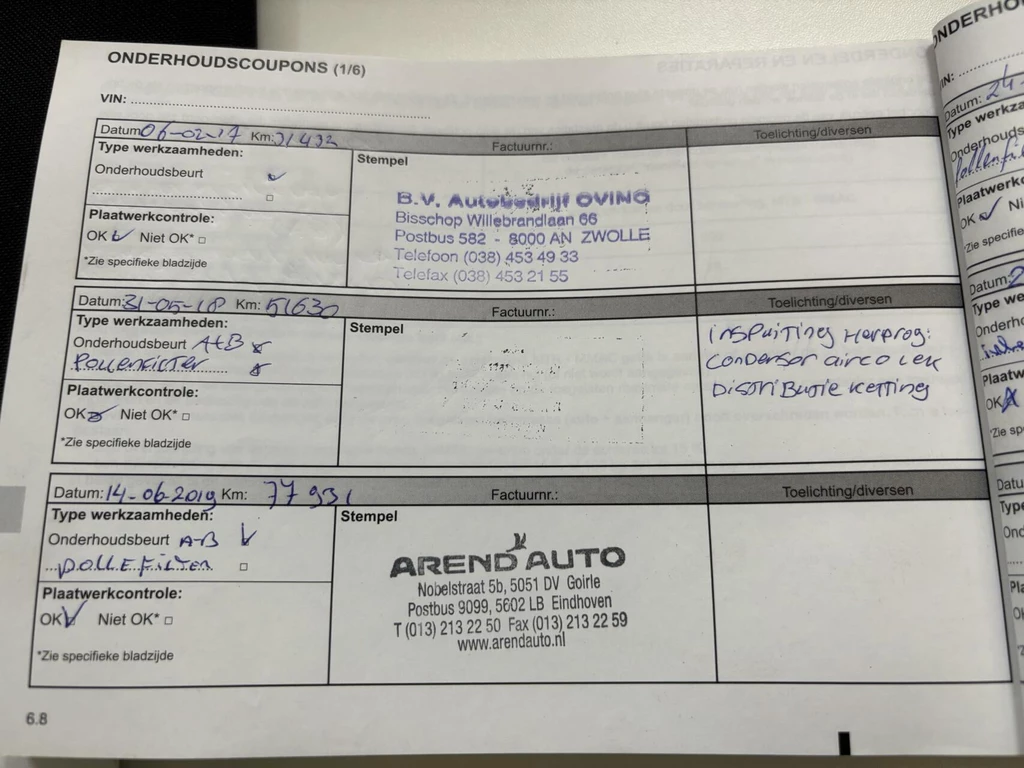 ONDERHOUDSCOUPONS (1/6)
VIN:
Datum: 06-02-17 Km: 31432 Factuurnr.: Toelichting/diversen
Type werkzaamheden:
Stempel
Onderhoudsbeurt
B.V. Autobedrijf OVING
Bisschop Willebrandlaan 66
Postbus 582 - 8000 AN ZWOLLE
Telefoon (038) 453 49 33
Telefax (038) 453 21 55
Plaatwerkcontrole:
OK Niet OK*
*Zie specifieke bladzijde
Datum: 31-05-18 Km: 51630 Factuurnr.: Toelichting/diversen
Type werkzaamheden:
Stempel
Onderhoudsbeurt A+B
Pollenfilter
inspuiting herprog:
condensor airco lek
Distributie ketting
Plaatwerkcontrole:
OK Niet OK*
*Zie specifieke bladzijde
Datum: 14-06-2019 Km: 77931 Factuurnr.: Toelichting/diversen
Type werkzaamheden:
Stempel
Onderhoudsbeurt A-B
POLLEFILTER
AREND AUTO
Nobelstraat 5b, 5051 DV Goirle
Postbus 9099, 5602 LB Eindhoven
T (013) 213 22 50 Fax (013) 213 22 59
www.arendauto.nl
Plaatwerkcontrole:
OK Niet OK*
*Zie specifieke bladzijde
6.8
Datum: 24-
Onderhouds
OK
Datum: 2